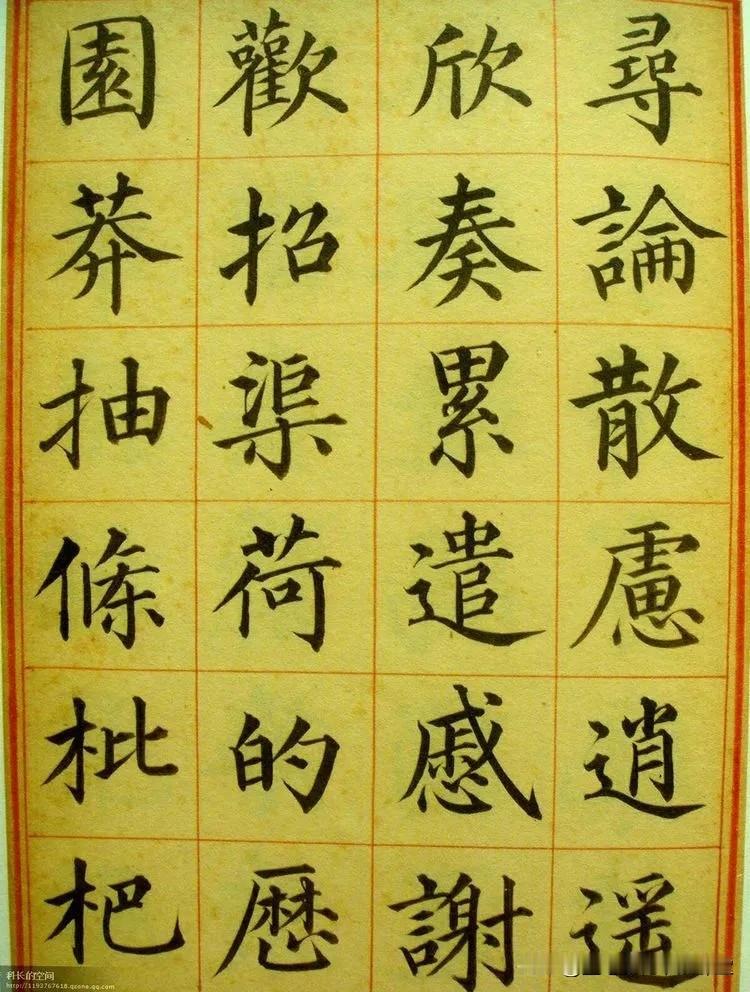 尋論散慮逍遥
欣奏累遣慼謝
歡招渠荷的歷
園莽抽條枇杷
科长的空间
http://1193767618.qzone.qq.com